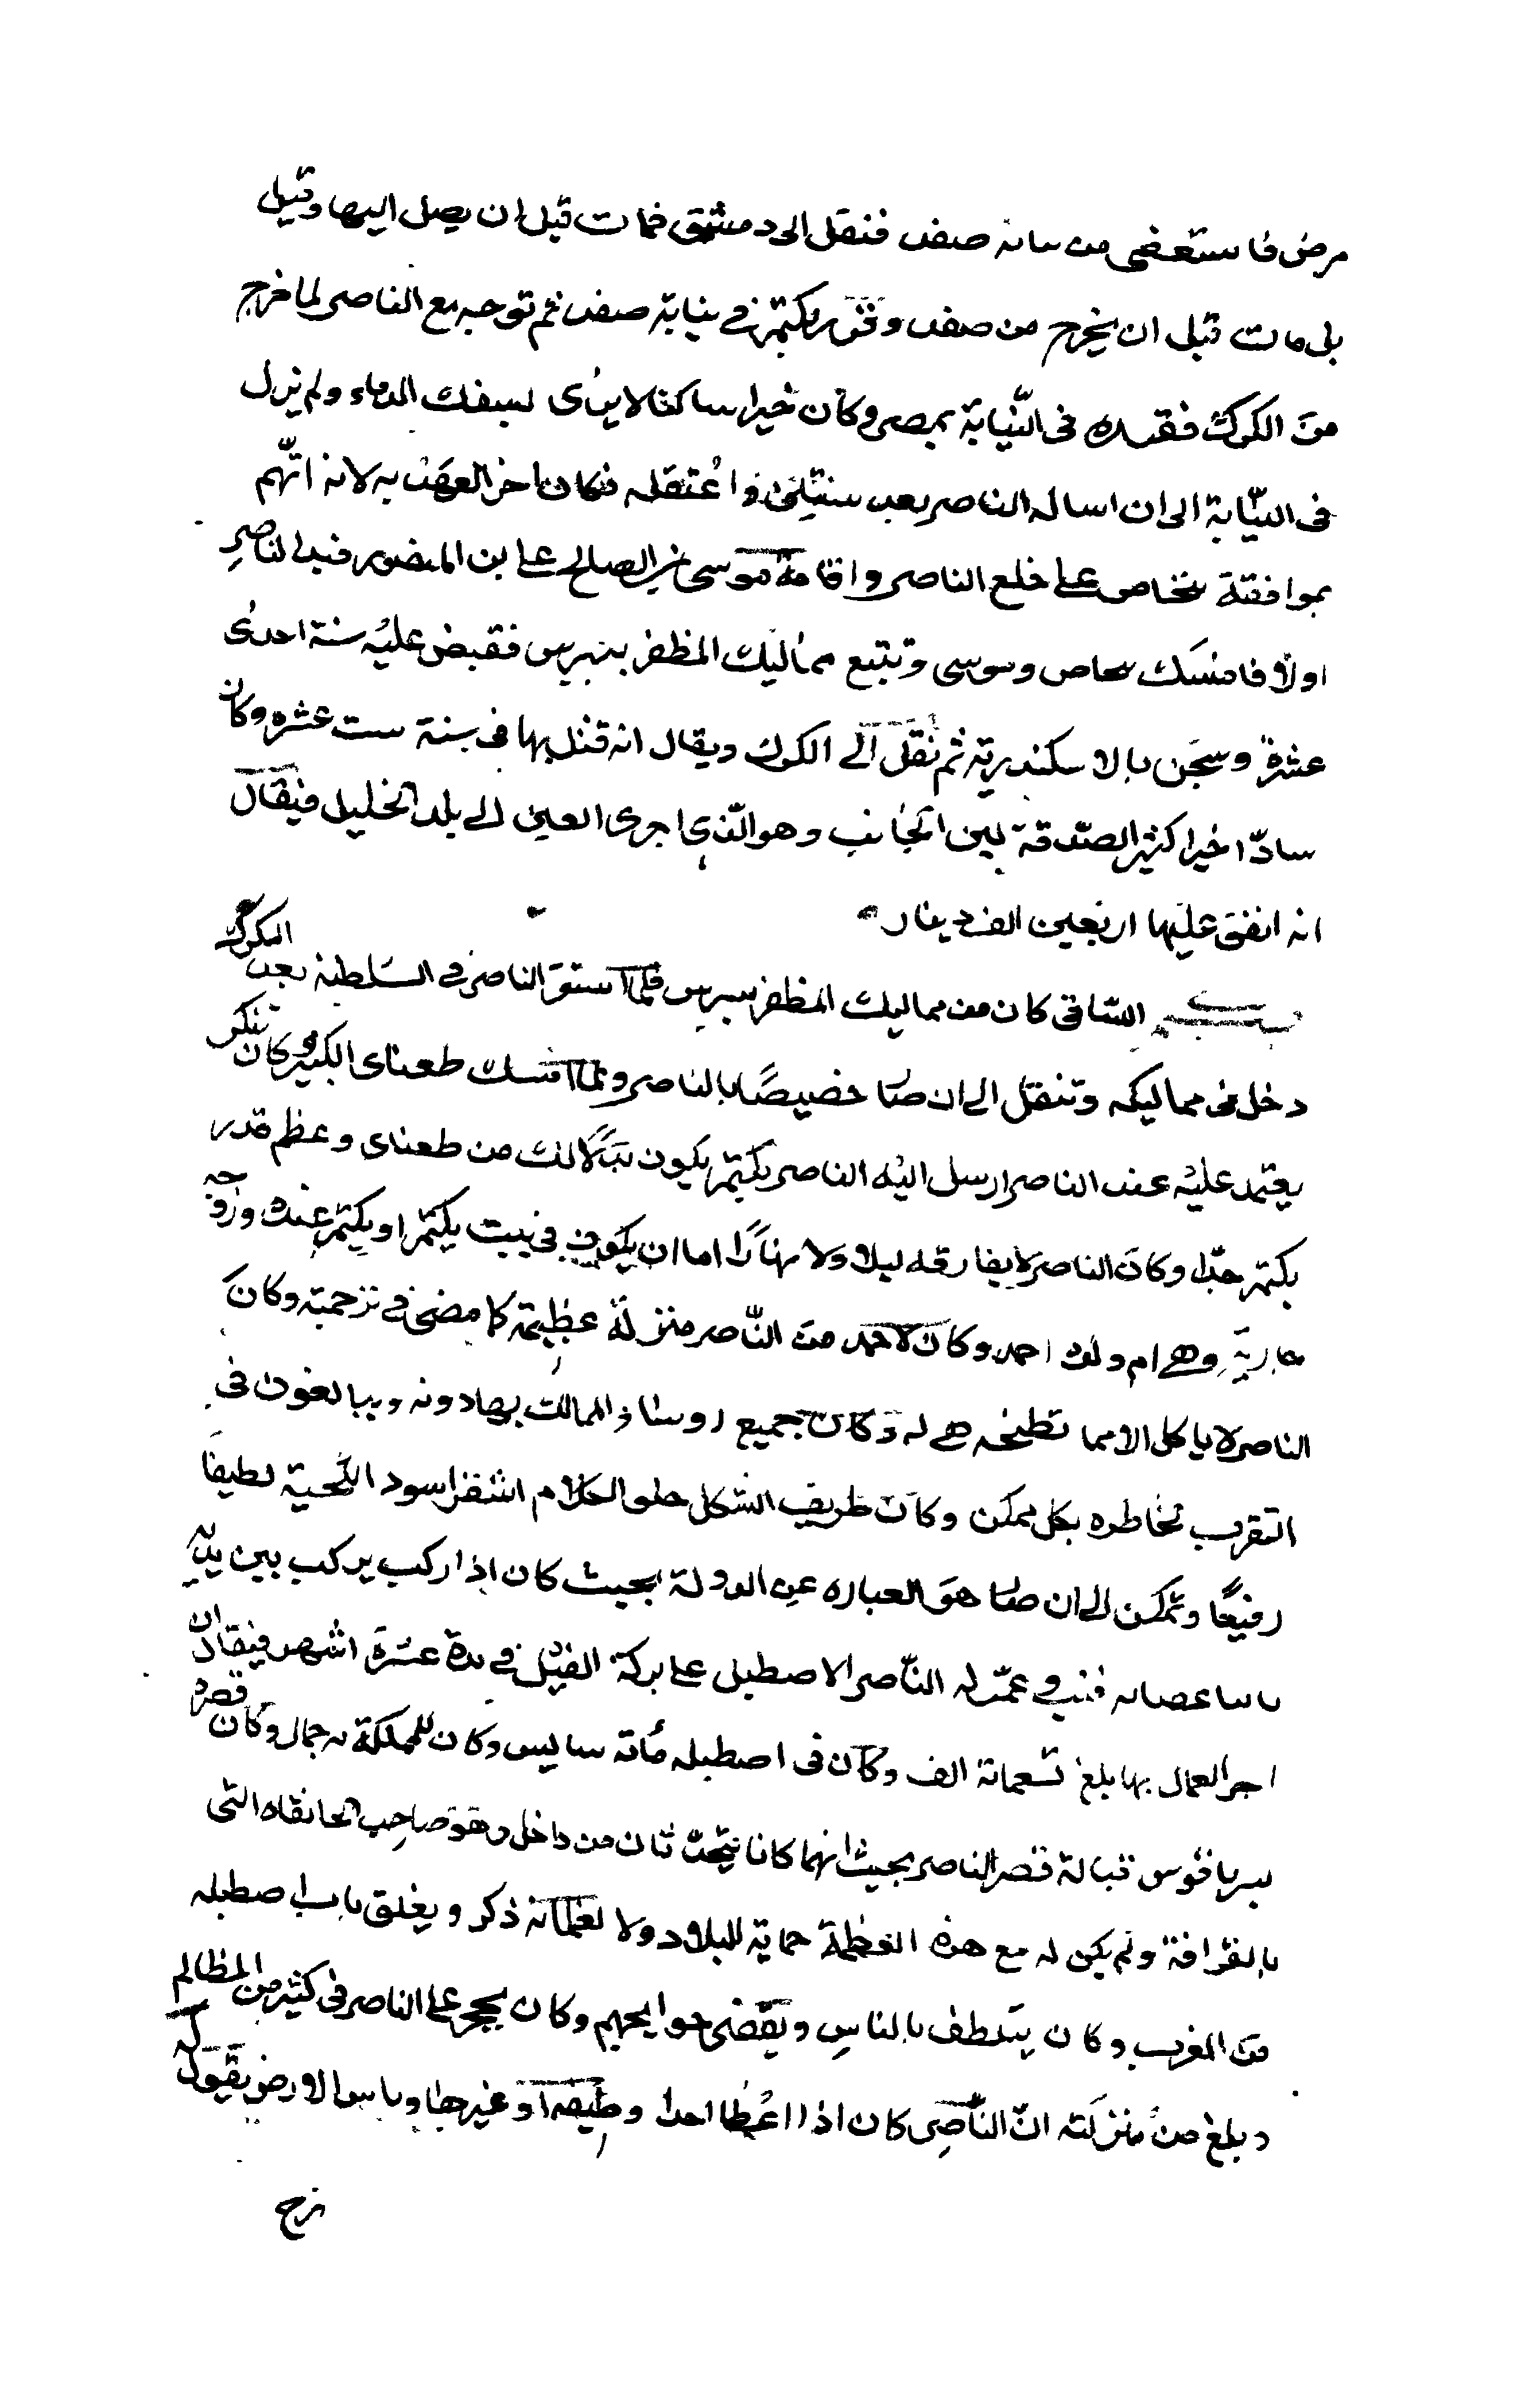 مرض فاستعفى من نيابة صفد فنقل الى دمشق فمات قبل ان يصل اليها وقيل
بل مات قبل ان يخرج من صفد وتقرر بكتمر في نيابة صفد ثم توجه مع الناصر لما خرج
من الكرك فقرره فى النيابة بمصر وكان خيرا ساكنا لا يرى لسفك الدماء ولم يزل
فى النيابة الى ان اساله الناصر بعد سنتين واعتقله فكان اخر العهد به لانه اتهم
بموافقة بتخاص على خلع الناصر واقامة موسى بن الصالح على بن المنصور فبدا لناصر
اولا فامسك بتخاص وموسى وتتبع مماليك المظفر بيبرس فقبض عليه سنة احدى
عشرة وسجن بالاسكندرية ثم نقل الى الكرك ويقال انه قتل بها فى سنة ست عشره وكان
سادا خيرا كثير الصدقة لين الجانب وهو الذى اجرى العين الى بلد الخليل فيقال
انه انفق عليها اربعين الف دينار
الساقى كان من مماليك المظفر بيبرس فلما استقر الناصر في السلطنة بعد الكرك
دخل فى مماليكه وتنقل الى ان صار خصيصا بالناصر ولما امسك طغاى الكبير وكان تنكز
يعتمد عليه عند الناصر ارسل اليه الناصر بكتمر يكون بدلا لك من طغاى وعظم قدر
بكتمر جدا وكان الناصر لا يفارقه ليلا ولا نهارا اما ان يكون فى بيت بكتمر او بكتمر عنده وزوجه
جاريته وهى ام ولده احمد وكان لاحمد من الناصر منزلة عظيمة كما مضى في ترجمته وكان
الناصر لا ياكل الا مما تطبخه هى له وكان جميع روساء الممالك يهادونه ويبالغون فى
التقرب لخاطره بكل ممكن وكان ظريف الشكل حلو الكلام اشقر اسود اللحية لطيفا
رفيعا وتمكن الى ان صار هو العباره عن الدولة بحيث كان اذا ركب يركب بين يديه
مايتا عصاة نقيب وعمر له الناصر الاصطبل على بركة الفيل في مدة عشرة اشهر فيقال ان
اجر العمال بها بلغ تسعماية الف وكان فى اصطبله مأته سايس وكان للمملكة به جمال وكان قصره
بسرياقوس قبالة قصر الناصر بحيث انهما كانا يتحدثان من داخل وهو صاحب الخانقاه التى
بالقرافة ولم يكن له مع هذه العظمة حماية للبلاد ولا لغلمانه ذكر ويغلق باب اصطبله
من المغرب وكان يتلطف بالناس ويقضى حوايجهم وكان يحجر على الناصر فى كثير من المظالم
وبلغ من منزلته ان الناصر كان اذا اعطا احدا وظيفة او غيرها وباس الارض يقول له
نرح